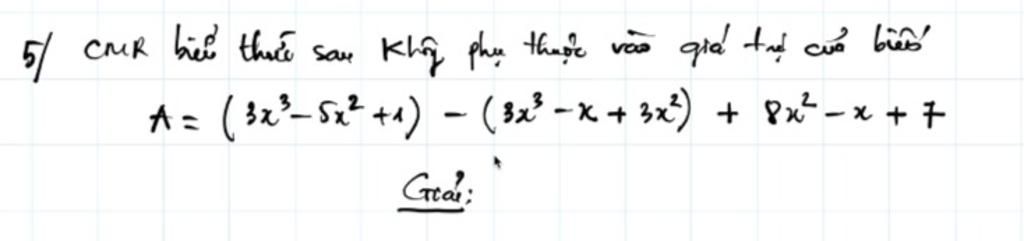 5/ CMR biểu thức sau không phụ thuộc vào giá trị của biến
A = (3x³ - 5x² + 1) - (3x³ - x + 3x²) + 8x² - x + 7
Giải: